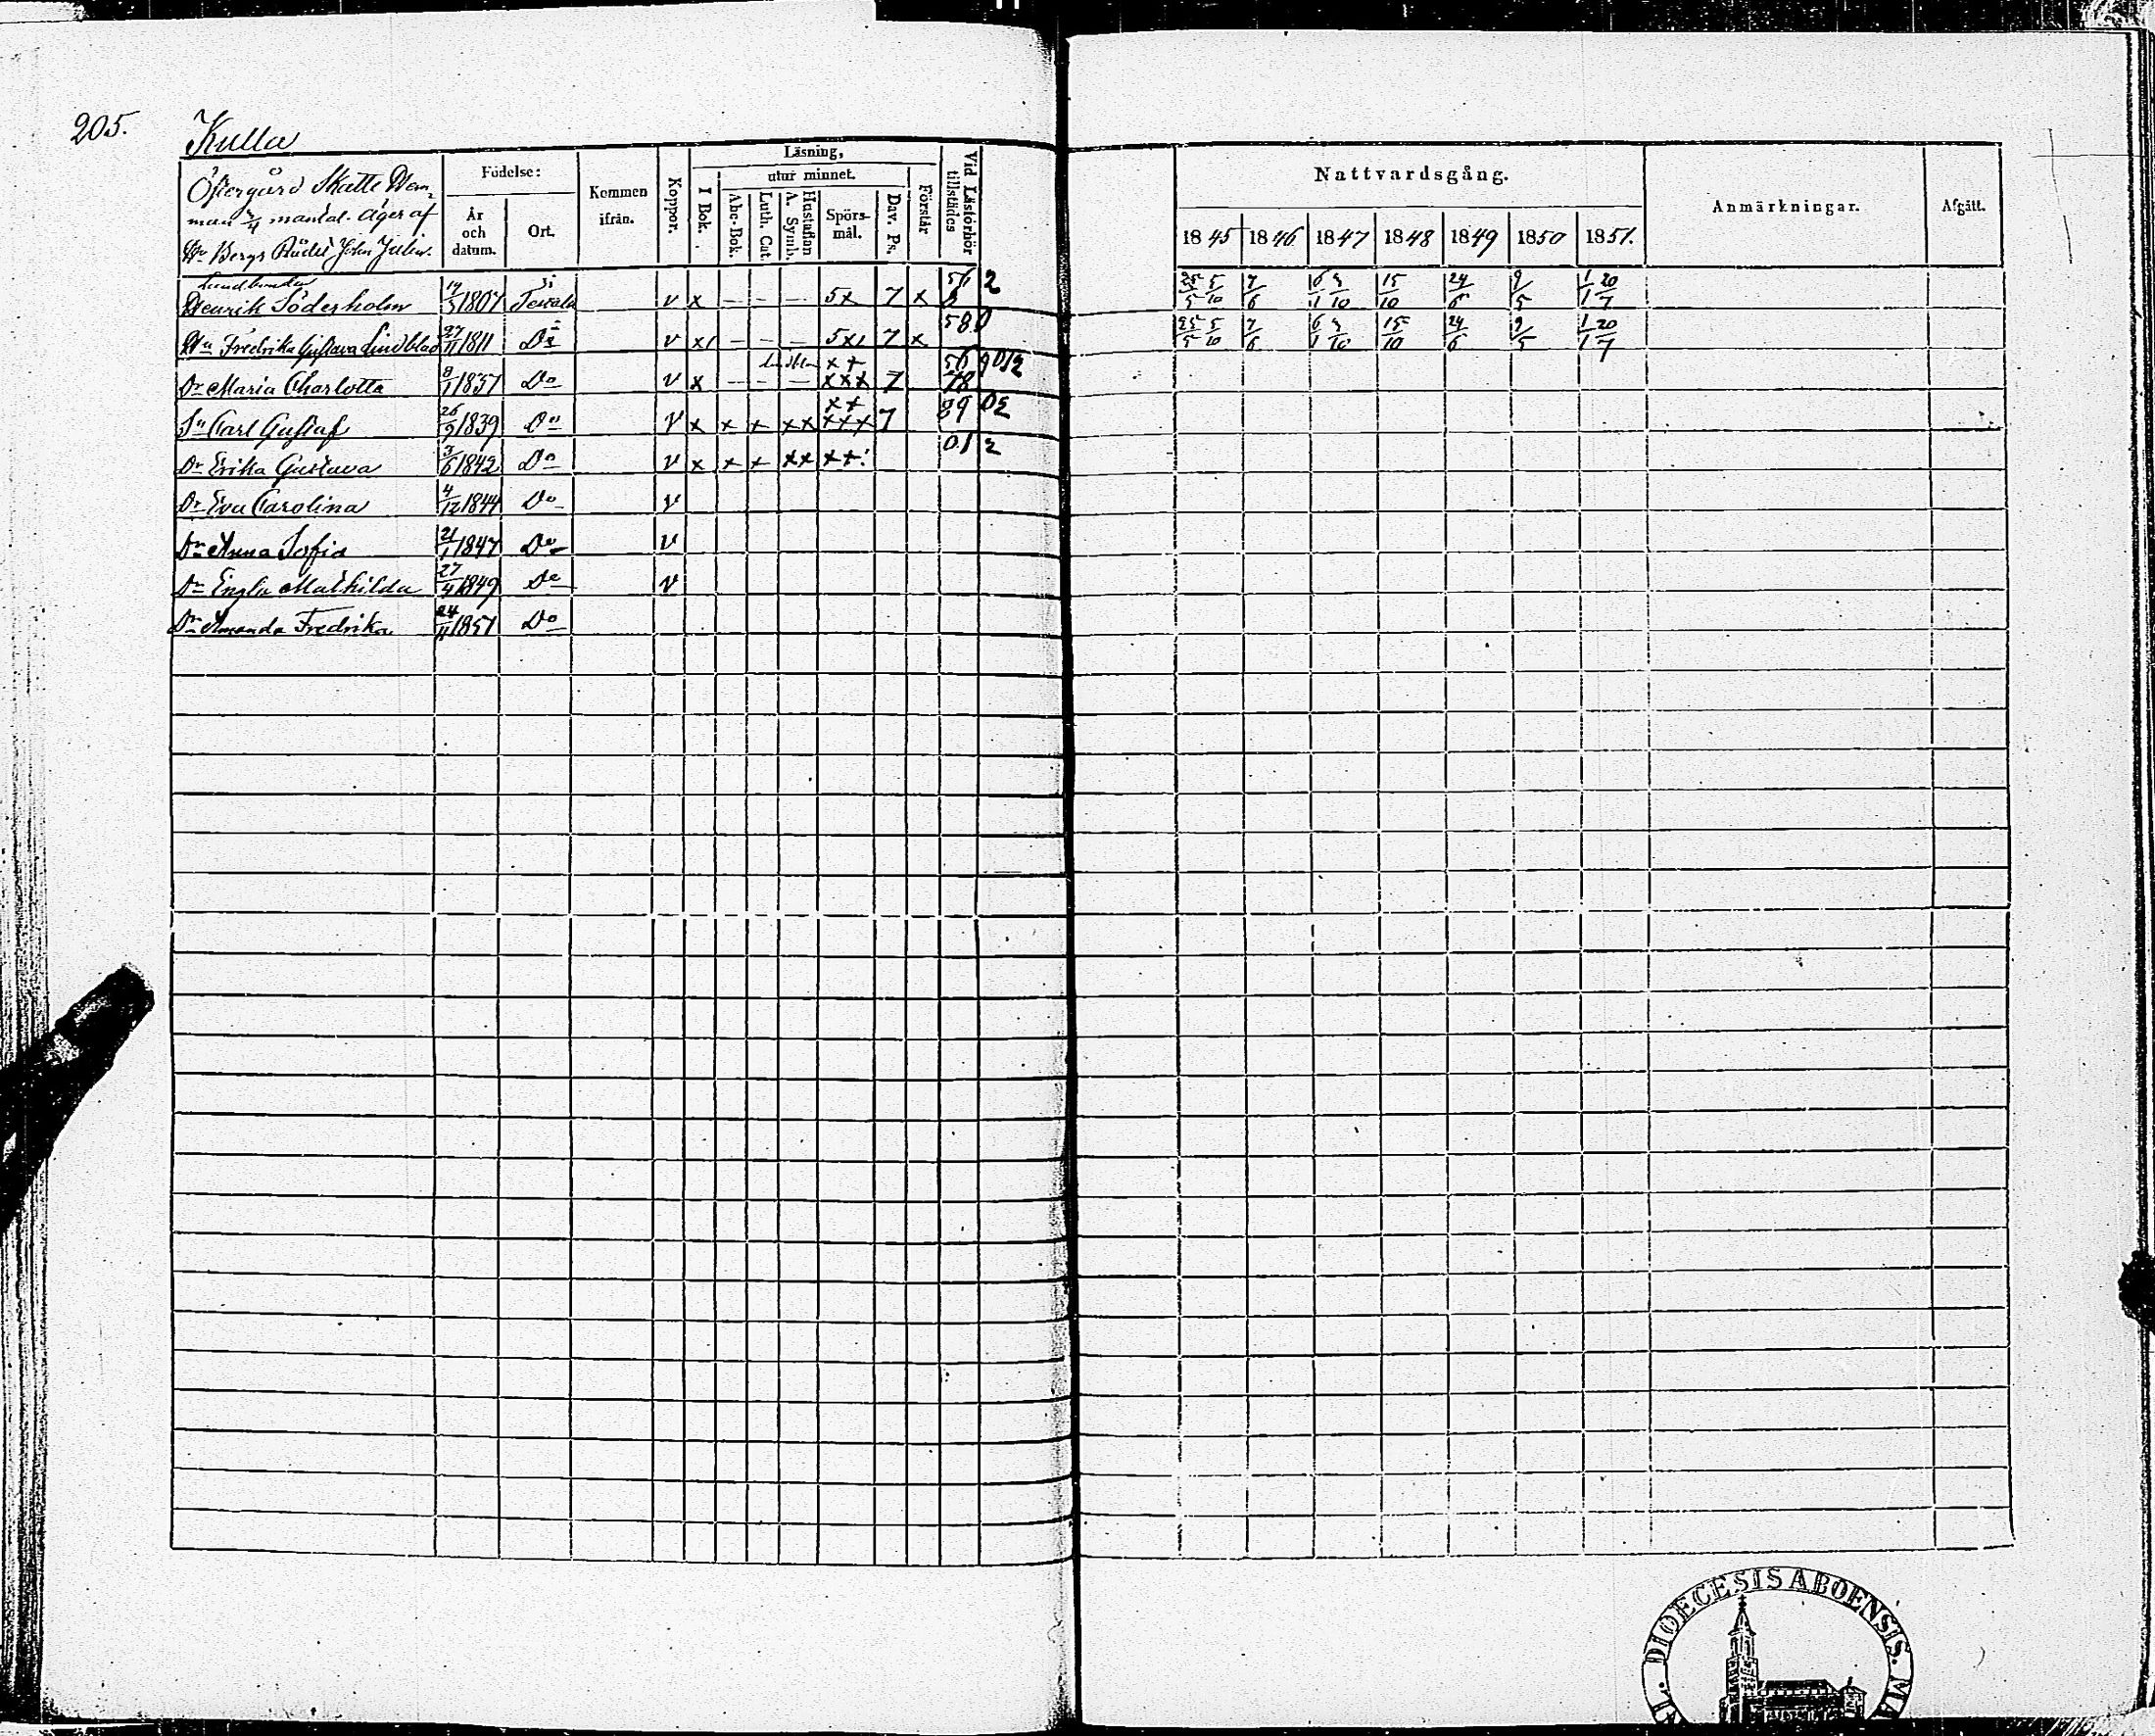 205.
Kulla
Östergård Skatte Hem-
man 3/4 mantal. Äges af
Hr Bergs Rådet John Julin.
Födelse:
År
och
datum.
Ort.
Kommen
ifrån.
Koppor.
Läsning,
I Bok.
utur minnet.
Abc-Bok.
Luth. Cat.
Hustaflan
A. Symb.
Spörs-
mål.
Dav. Ps.
Förstår
Vid Läsförhör
tillstädes
Nattvardsgång.
1845 1846 1847 1848 1849 1850 1851.
Anmärkningar.
Afgått.
Landbonden
Henrik Söderholm 14/3 1807 v x — — — 5x 7 x 25/5 5/10 7/6 15/10 24/6 9/5 1/1 20/7
Hu Fredrika Gustava Lindblad 27/11 1811 Do v x — — — 7 x 58 25/5 5/10 7/6 15/10 24/6 9/5 1/1 20/7
Dr Maria Charlotta 8/1 1837 Do v x — — — xx xxx 7
Sn Carl Gustaf 26/9 1839 Do v x x x xx xx xxx 7
Dr Erika Gustava 3/6 1842 Do v x x x xx xx
Dr Eva Carolina 4/12 1844 Do v
Dr Anna Sofia 21/1 1847 Do v
Dr Engla Mathilda 27/4 1849 Do v
Dr Amanda Fredrika 24/11 1851 Do
DIOECESIS ABOENSIS.